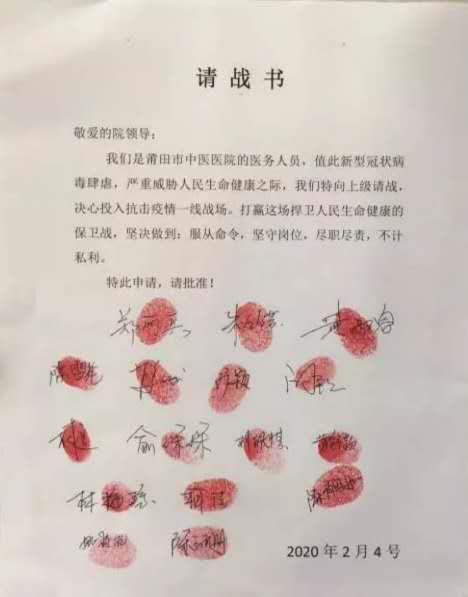 请战书
敬爱的院领导:
我们是莆田市中医医院的医务人员，值此新型冠状病
毒肆虐，严重威胁人民生命健康之际，我们特向上级请战，
决心投入抗击疫情一线战场。打赢这场捍卫人民生命健康的
保卫战，坚决做到：服从命令，坚守岗位，尽职尽责，不计
私利。
特此申请，请批准！
2020年2月4号